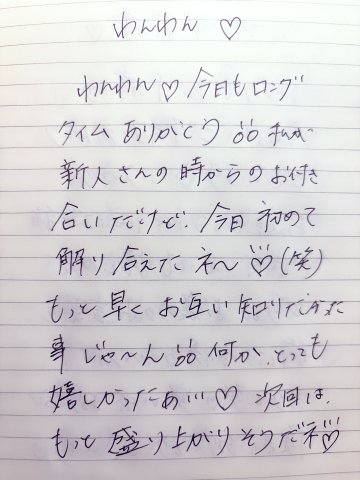 わんわん ♡
わんわん♡今日もロング
タイムありがとう!! 私が
新人さんの時からのお付き
合いだけど、今日初めて
解り合えたネ〜♡(笑)
もっと早くお互い知りたかった
事じゃ〜ん!! 何か、とっても
嬉しかったぁ…♡ 次回は、
もっと盛り上がりそうだネ♡